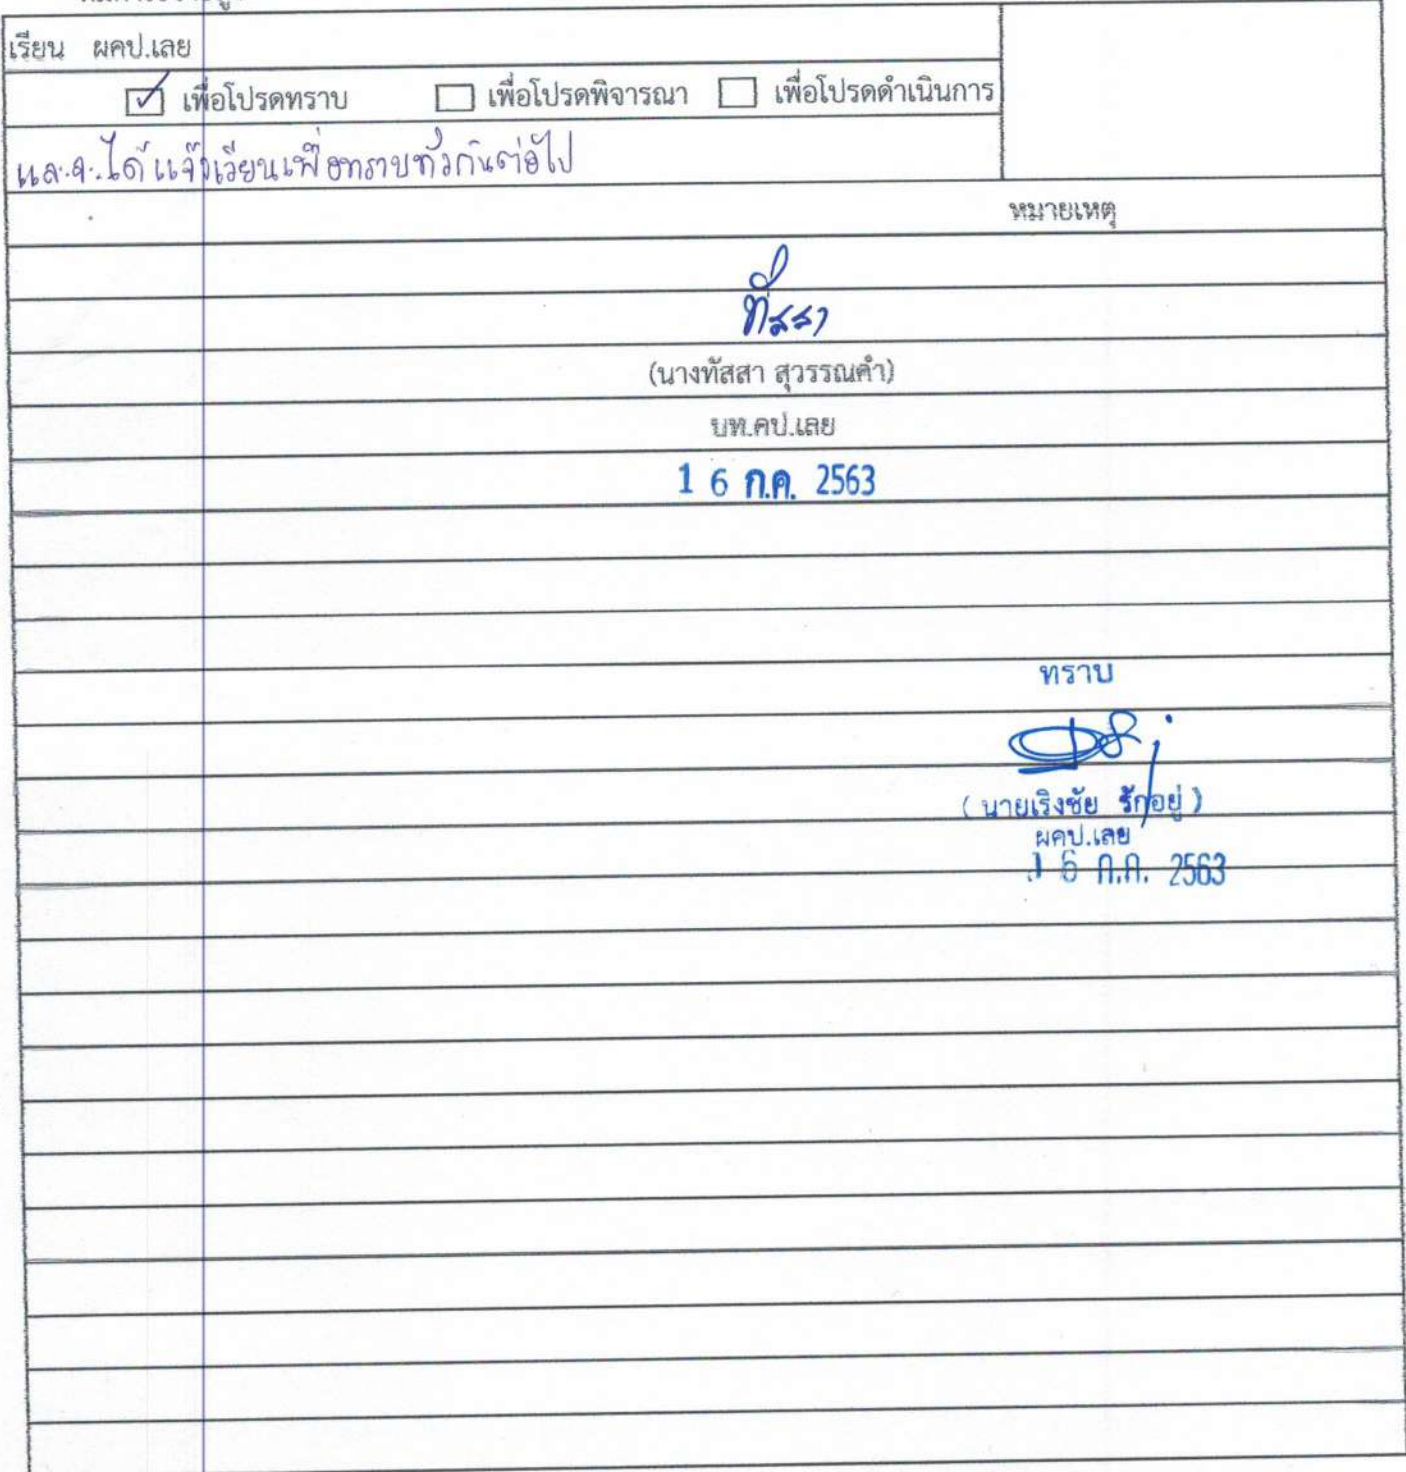 เรียน ผคป.เลย
เพื่อโปรดทราบ เพื่อโปรดพิจารณา เพื่อโปรดดำเนินการ
และจะได้แจ้งเวียนเพื่อทราบทั่วกันต่อไป
หมายเหตุ
ทัสสา
(นางทัสสา สุวรรณคำ)
บท.คป.เลย
16 ก.ค. 2563
ทราบ
( นายเริงชัย รักอยู่ )
ผคป.เลย
16 ก.ค. 2563